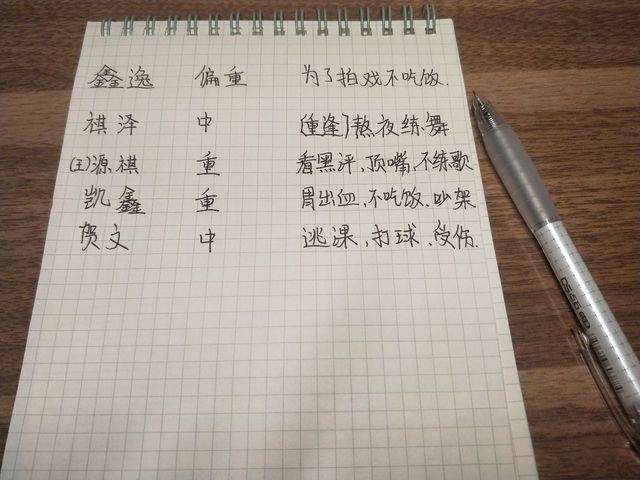 鑫逸 偏重 为了拍戏不吃饭.
祺泽 中 (重逢)熬夜练舞
(王)源祺 重 看黑评,顶嘴,不练歌
凯鑫 重 胃出血,不吃饭.吵架
贺文 中 逃课,打球.受伤.